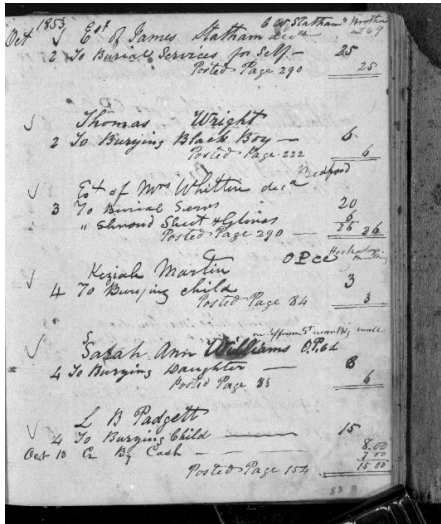 Oct 1853 Est of James Statham decd C W Statham Brother
2 To Burial Services for Self — 25
Posted Page 290 25
Thomas Wright
2 To Burying Black Boy — 6
Posted Page 222 6
Est of Mrs Whitten decd Bedford
3 To Burial Serves 20
" Shroud Sheet & Gloves 6
Posted Page 290 — 26 26
Keziah Martin O.P.Ced
4 To Burying child 3
Posted Page 84 3
Sarah Ann Williams O.P.Cd
4 To Burying Daughter — 6
Posted Page 6
L B Padgett
4 To Burying Child — 15
Oct 13 Cr By Cash — 8.00
7 00
Posted Page 154 15 00